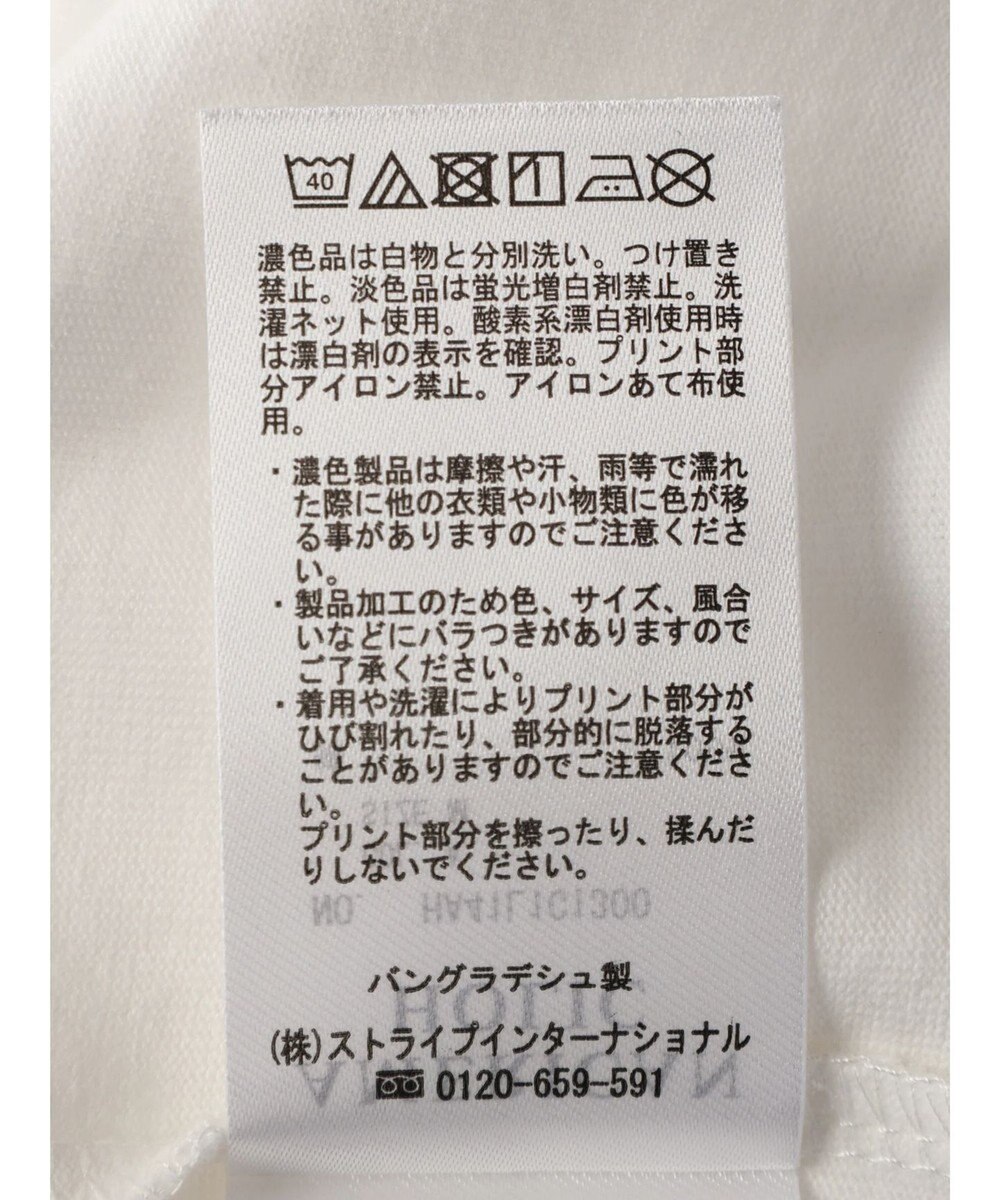 40
濃色品は白物と分別洗い。つけ置き
禁止。淡色品は蛍光増白剤禁止。洗
濯ネット使用。酸素系漂白剤使用時
は漂白剤の表示を確認。プリント部
分アイロン禁止。アイロンあて布使
用。
・濃色製品は摩擦や汗、雨等で濡れ
た際に他の衣類や小物類に色が移
る事がありますのでご注意くださ
い。
・製品加工のため色、サイズ、風合
いなどにバラつきがありますので
ご了承ください。
・着用や洗濯によりプリント部分が
ひび割れたり、部分的に脱落する
ことがありますのでご注意くださ
い。
SIZE M
プリント部分を擦ったり、揉んだ
りしないでください。
NO. HA41L1C1300
バングラデシュ製
HOLIC
(株)ストライプインターナショナル
0120-659-591